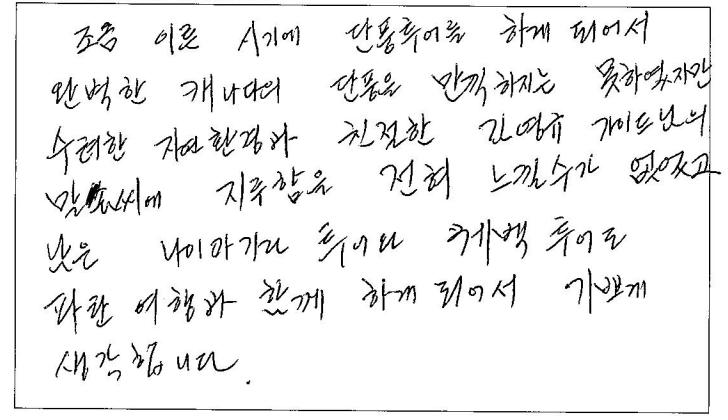 조금 이른 시기에 단풍투어를 하게 되어서
완벽한 캐나다의 단풍을 만끽하지는 못하였지만
수려한 자연환경과 친절한 김영규 가이드님의
말솜씨에 지루함을 전혀 느낄수가 없었고
남은 나이아가라 투어와 퀘백 투어도
파란 여행과 함께 하게 되어서 기쁘게
생각합니다.